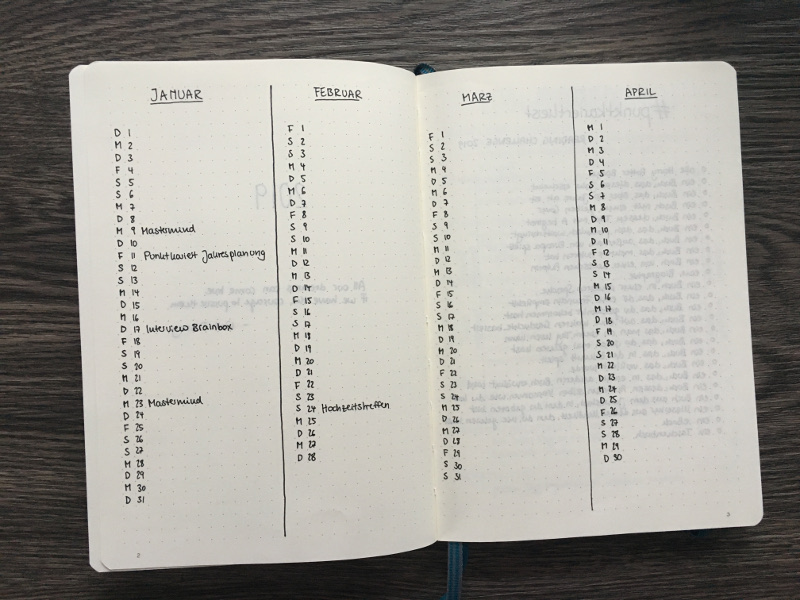 JANUAR
D 1
M 2
D 3
F 4
S 5
S 6
M 7
D 8
M 9 Mastermind
D 10
F 11 Punktkariert Jahresplanung
S 12
S 13
M 14
D 15
M 16
D 17 Interview Brainbox
F 18
S 19
S 20
M 21
D 22
M 23 Mastermind
D 24
F 25
S 26
S 27
M 28
D 29
M 30
D 31
2
FEBRUAR
F 1
S 2
S 3
M 4
D 5
M 6
D 7
F 8
S 9
S 10
M 11
D 12
M 13
D 14
F 15
S 16
S 17
M 18
D 19
M 20
D 21
F 22
S 23
S 24 Hochzeitstreffen
M 25
D 26
M 27
D 28
MÄRZ
F 1
S 2
S 3
M 4
D 5
M 6
D 7
F 8
S 9
S 10
M 11
D 12
M 13
D 14
F 15
S 16
S 17
M 18
D 19
M 20
D 21
F 22
S 23
S 24
M 25
D 26
M 27
D 28
F 29
S 30
S 31
APRIL
M 1
D 2
M 3
D 4
F 5
S 6
S 7
M 8
D 9
M 10
D 11
F 12
S 13
S 14
M 15
D 16
M 17
D 18
F 19
S 20
S 21
M 22
D 23
M 24
D 25
F 26
S 27
S 28
M 29
D 30
3